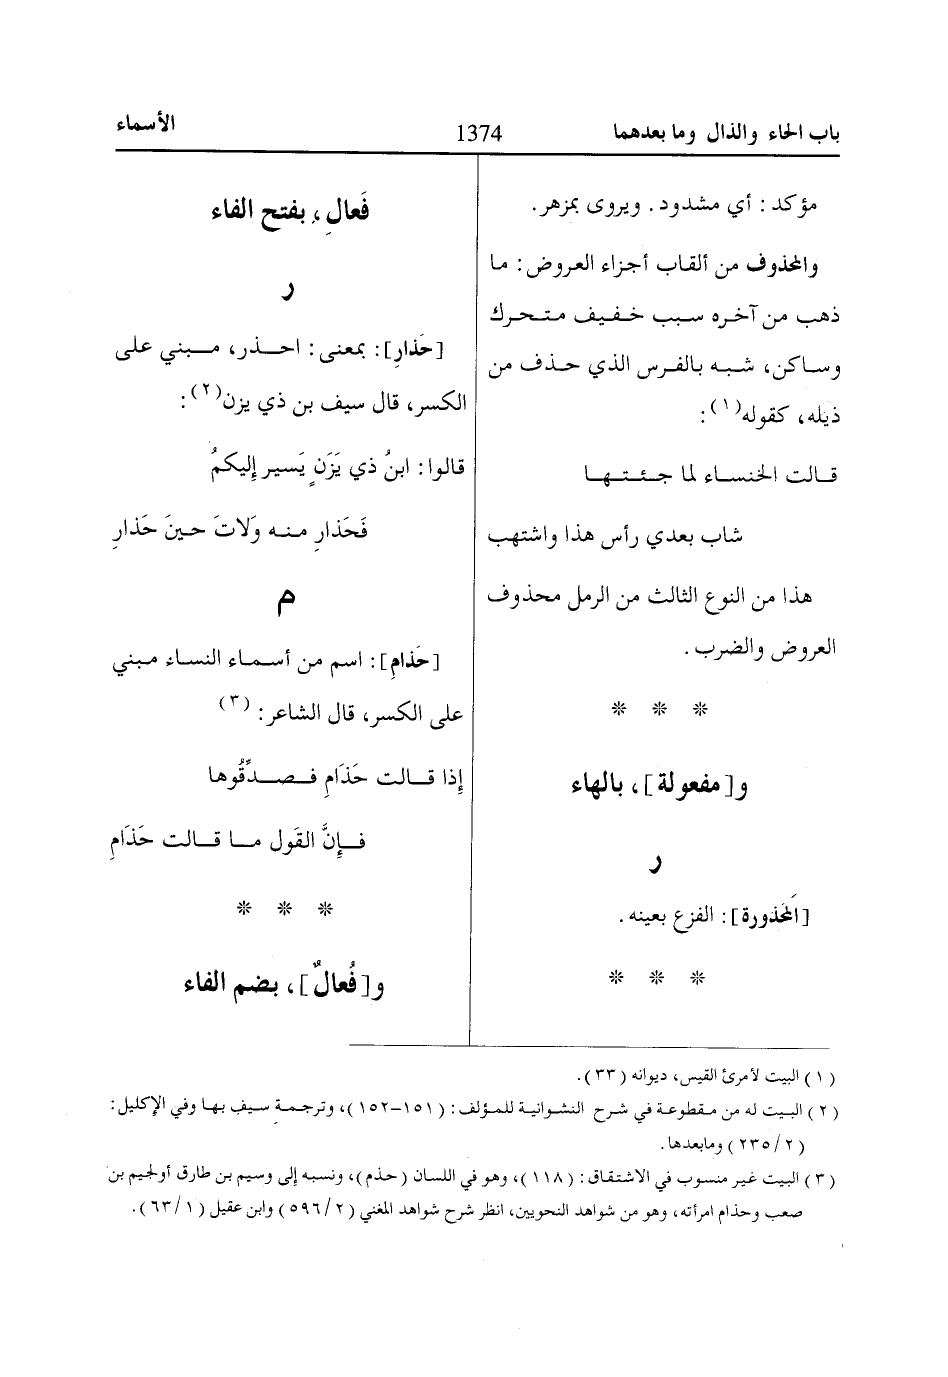 باب الحاء والذال وما بعدهما
1374
الأسماء
مؤكد : أي مشدود . ويروى بمزهر .
والمحذوف من ألقاب أجزاء العروض : ما
ذهب من آخره سبب خفيف متحرك
وساكن، شبه بالفرس الذي حذف من
ذيله، كقوله(١) :
قالت الخنساء لما جئتها
شاب بعدي رأس هذا واشتهب
هذا من النوع الثالث من الرمل محذوف
العروض والضرب .
* * *
و[مفعولة]، بالهاء
ر
[المَحْذورة] : الفزع بعينه .
* * *
فَعالِ، بفتح الفاء
ر
[حَذارِ] : بمعنى : احذر، مبني على
الكسر، قال سيف بن ذي يزن(٢) :
قالوا : ابنُ ذي يَزَنٍ يَسير إليكمُ
فَحَذارِ منه وَلاتَ حينَ حَذارِ
م
[حَذامِ] : اسم من أسماء النساء مبني
على الكسر، قال الشاعر : (٣)
إذا قالت حَذَامِ فصدِّقُوها
فإنَّ القَول ما قالت حَذَامِ
* * *
و[فُعالٌ]، بضم الفاء
(١) البيت لأمرئ القيس، ديوانه (٣٣).
(٢) البيت له من مقطوعة في شرح النشوانية للمؤلف : (١٥١-١٥٢)، وترجمة سيف بها وفي الإكليل :
(٢/٢٣٥) ومابعدها.
(٣) البيت غير منسوب في الاشتقاق : (١١٨)، وهو في اللسان (حذم)، ونسبه إلى وسيم بن طارق أو لجيم بن
صعب وحذام امرأته، وهو من شواهد النحويين، انظر شرح شواهد المغني (٢/٥٩٦) وابن عقيل (١/٦٣).